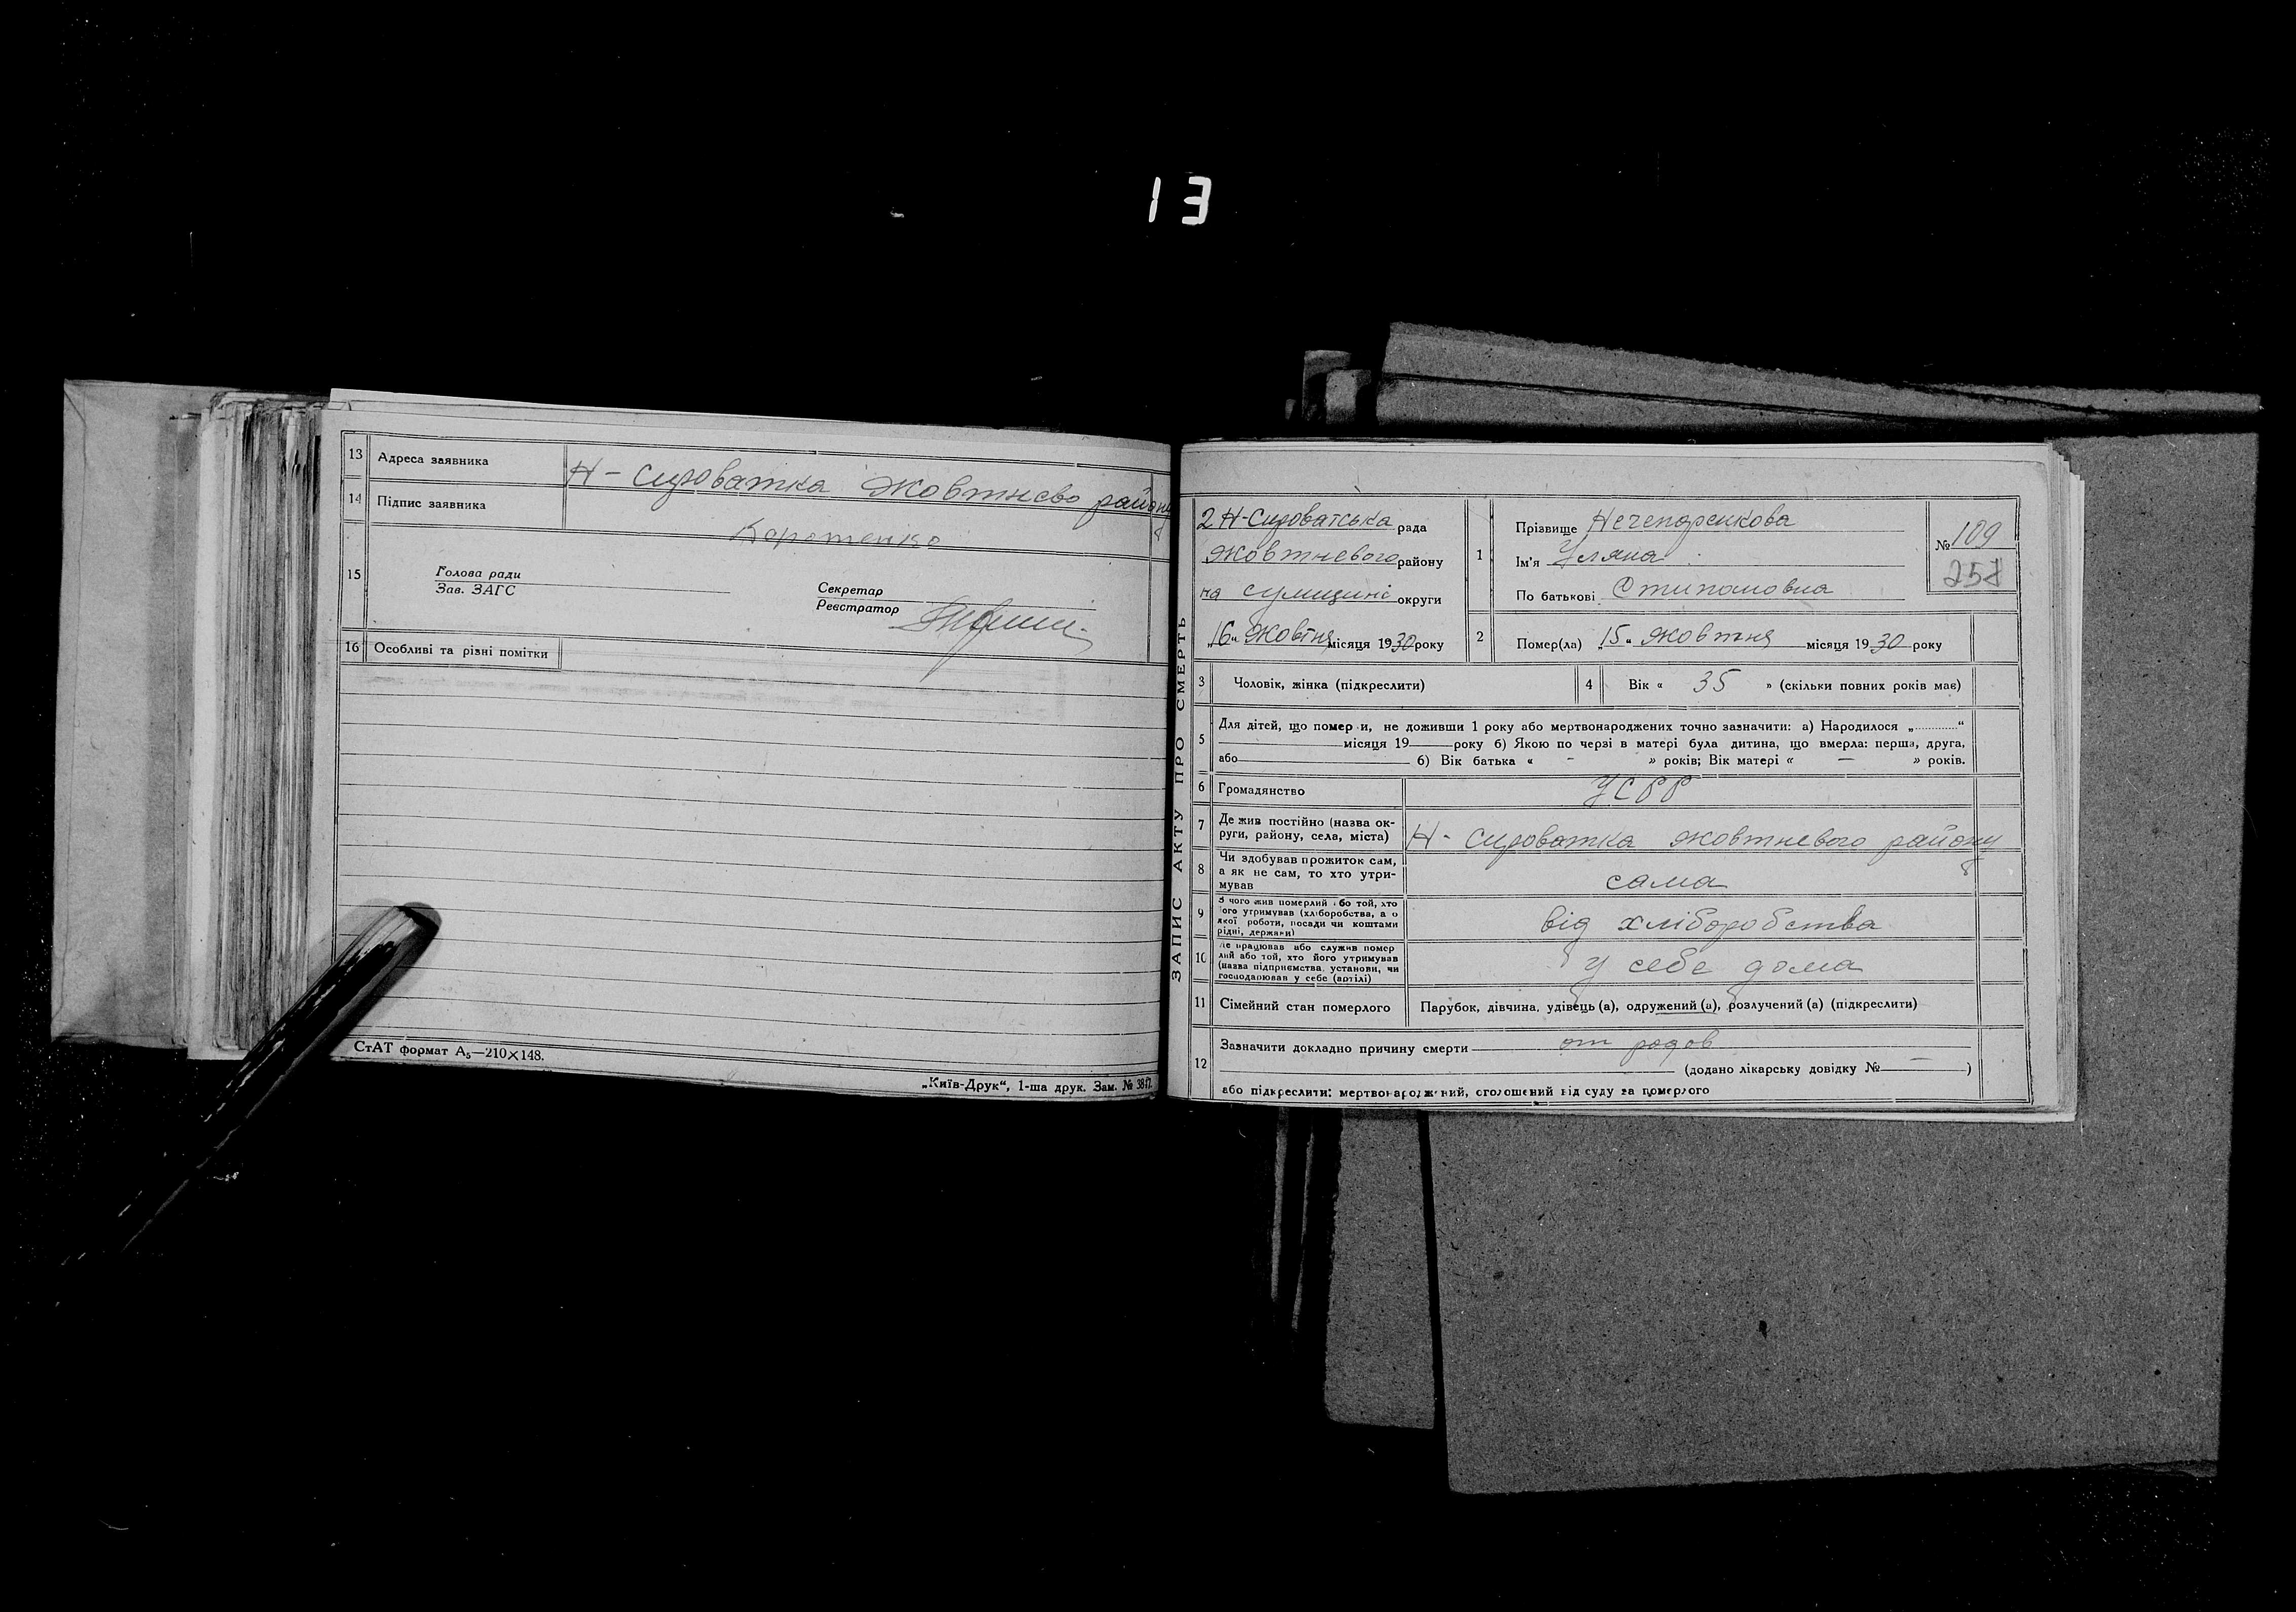 13
13 Адреса заявника Н-Сироватка Жовтнево району
14 Підпис заявника
Коротенко
15 Голова ради
Зав. ЗАГС
Секретар
Реєстратор
16 Особливі та різні помітки
СтАТ формат А5—210×148.
„Київ-Друк“, 1-ша друк. Зам. №
ЗАПИС АКТУ ПРО СМЕРТЬ
2 Н-Сироватська рада
Жовтневого району
на Сумщині округи
„16“ Жовтня місяця 1930 року
1 Прізвище Нечепоренкова
Ім'я Уляна
По батькові Стипановна
№ 109
258
2 Помер(ла) „15“ Жовтня місяця 1930 року
3 Чоловік, жінка (підкреслити)
4 Вік « 35 » (скільки повних років має)
5 Для дітей, що померли, не доживши 1 року або мертвонароджених точно зазначити: а) Народилося „...........“
місяця 19 року б) Якою по черзі в матері була дитина, що вмерла: перша, друга,
або б) Вік батька « - » років; Вік матері « - » років.
6 Громадянство УСРР
7 Де жив постійно (назва ок-
руги, району, села, міста) Н-Сироватка Жовтневого району
8 Чи здобував прожиток сам,
а як не сам, то хто утри-
мував сама
9 З чого жив померлий або той, хто
його утримував (хліборобства, а о
якої роботи, посади чи коштами
рідні, держави) від хліборобства
10 Де працював або служив помер
лий або той, хто його утримував
(назва підприємства, установи, чи
господарював у себе (артілі) у себе дома
11 Сімейний стан померлого Парубок, дівчина, удівець (а), одружений (а), розлучений (а) (підкреслити)
12 Зазначити докладно причину смерти от родов
(додано лікарську довідку № — )
або підкреслити: мертвонароджений, оголошений від суду за померлого